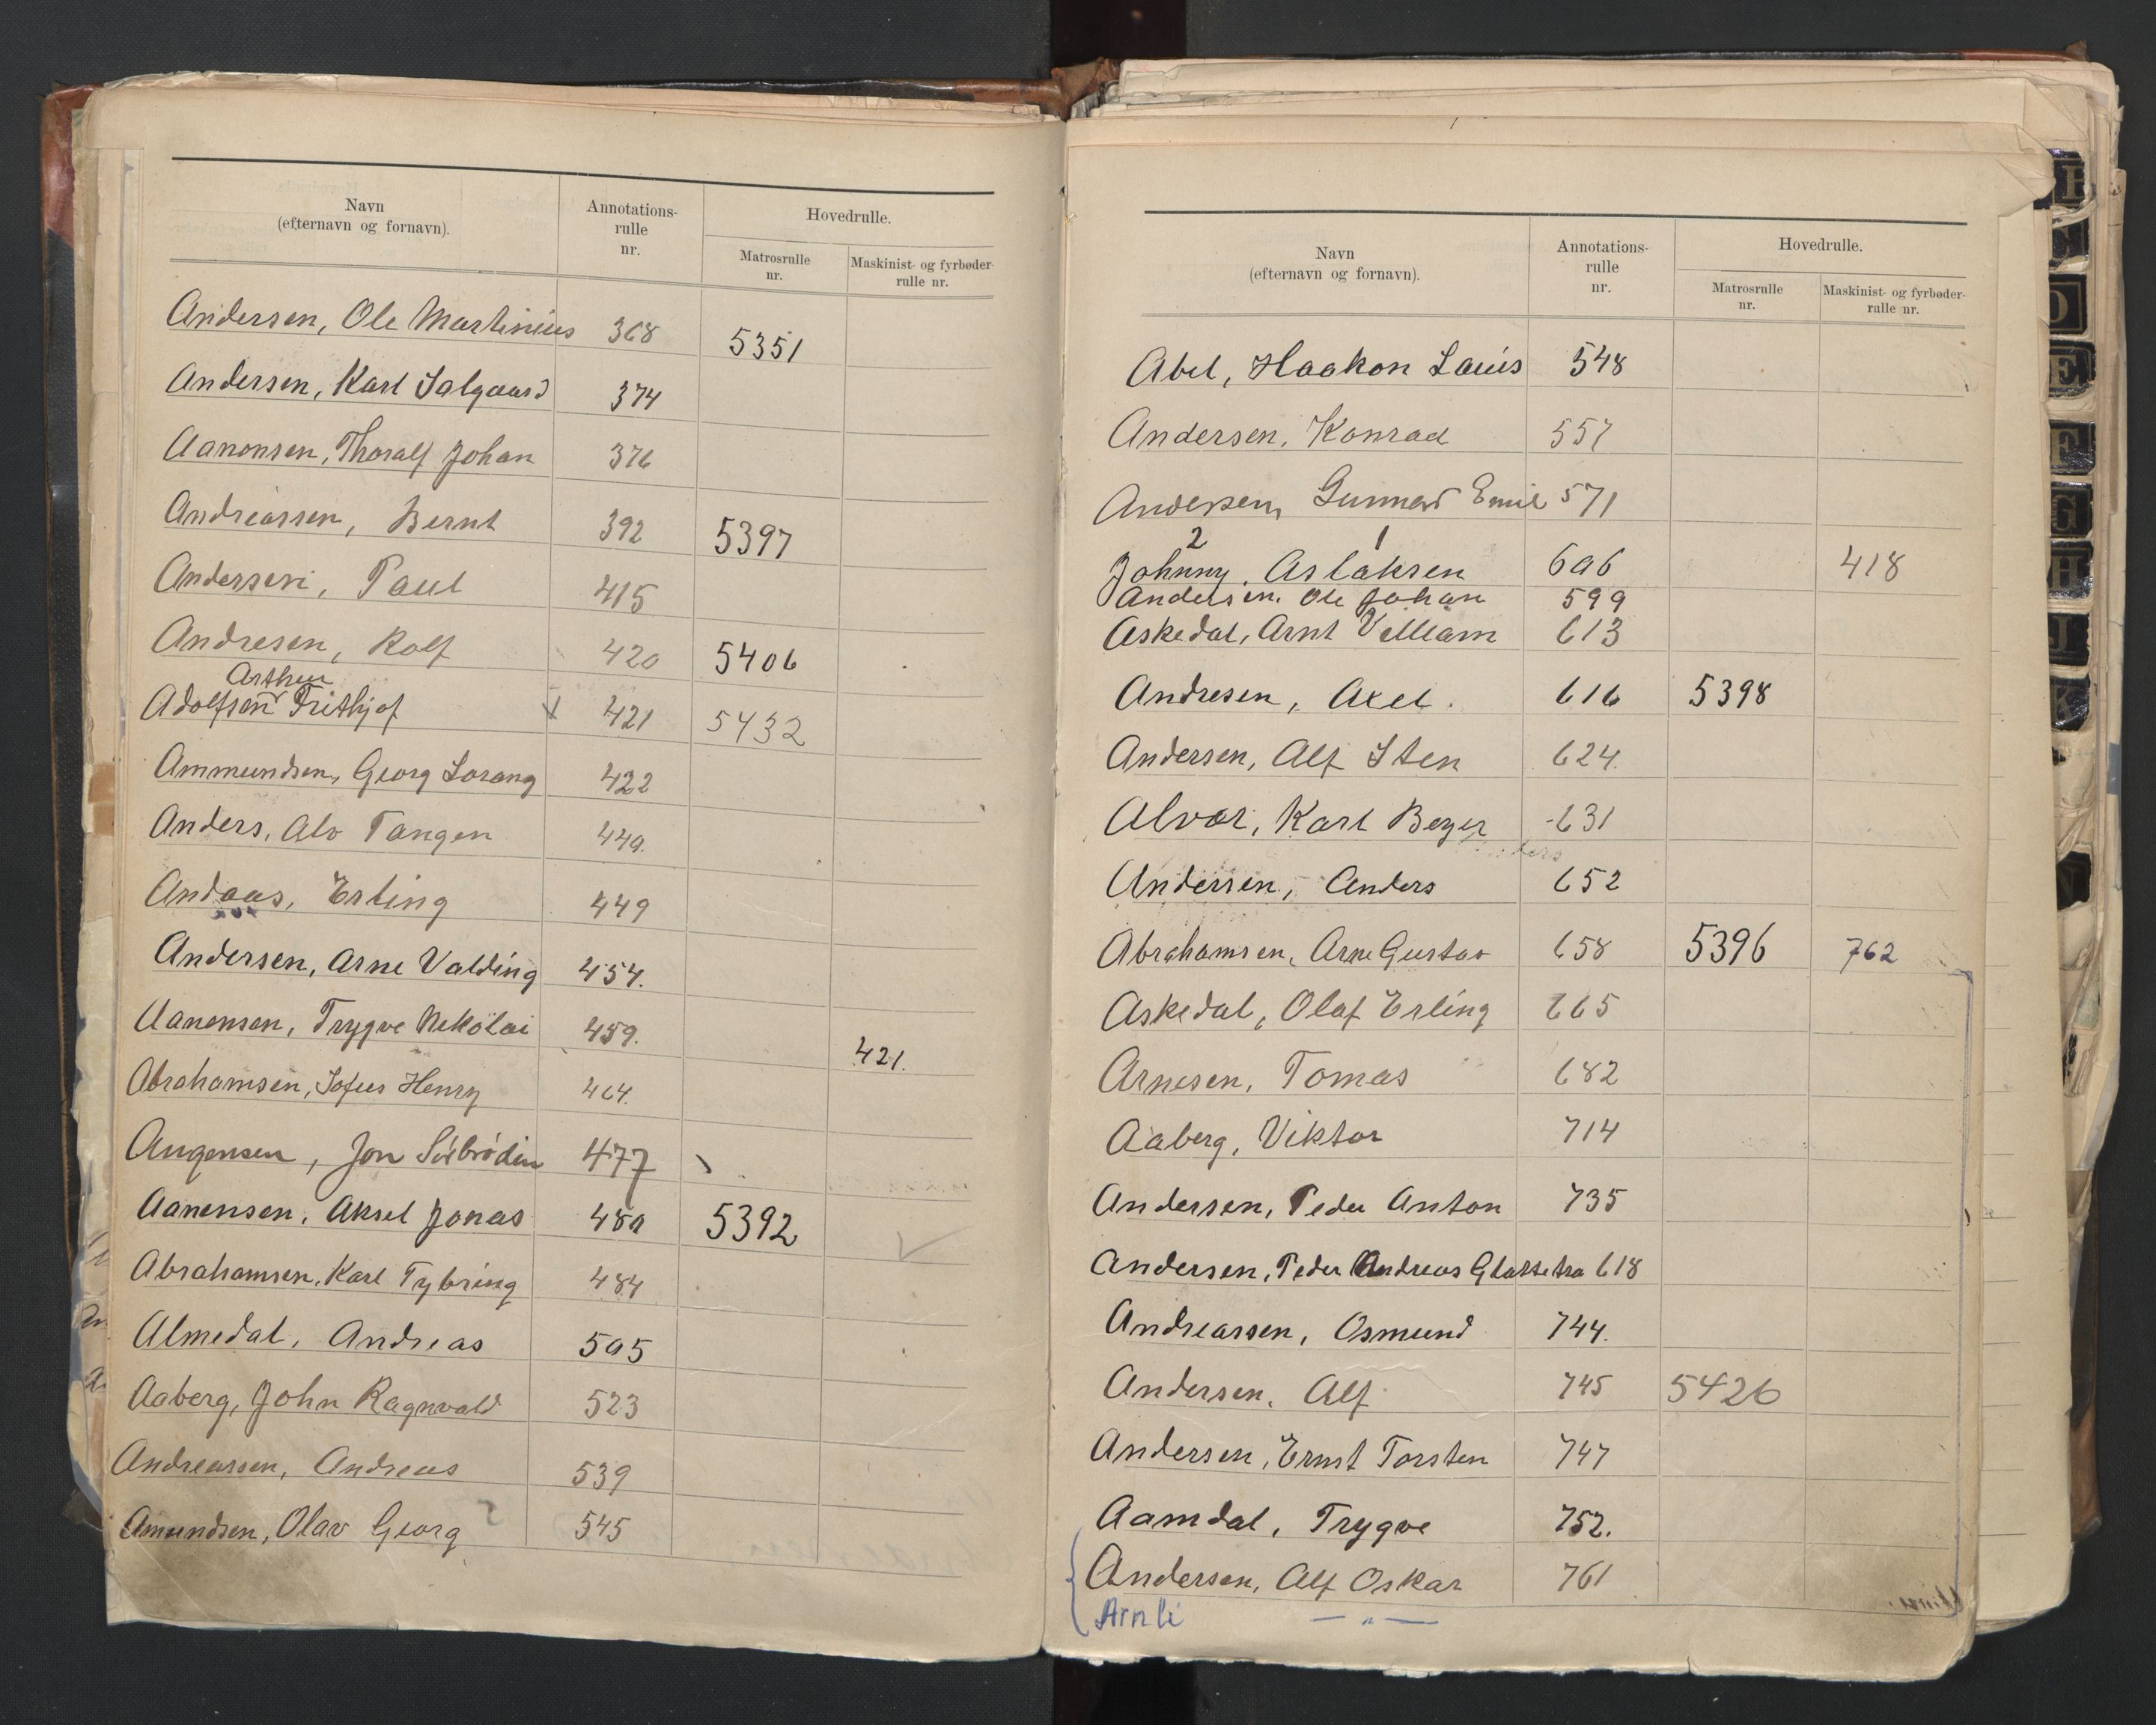 Navn
(efternavn og fornavn).
Annotations-
rulle
nr.
Hovedrulle.
Matrosrulle
nr.
Maskinist- og fyrbøder-
rulle nr.
Andersen, Ole Martinius 368 5351
Andersen, Karl Salgaard 374
Aanonsen, Thoralf Johan 376
Andreassen, Bernt 392 5397
Andersen, Paul 415
Andresen, Rolf 420 5406
Arthur
Adolfsen Frithjof 421 5432
Ammundsen, Georg Lorang 422
Anders, Alv Tangen 440.
Andaas, Erling 449
Andersen, Arne Valding 454.
Aanensen, Trygve Nikolai 459. 421.
Abrahamsen, Sofus Henry 464.
Augensen, Jon 477
Aanensen, Aksel Jonas 480 5392 ✓
Abrahamsen, Karl Tybring 484
Almedal, Andreas 505
Aaberg, John Ragnvald 523
Andreassen, Andreas 539
Amundsen, Olav Georg 545
Navn
(efternavn og fornavn).
Annotations-
rulle
nr.
Hovedrulle.
Matrosrulle
nr.
Maskinist- og fyrbøder-
rulle nr.
Abel, Haakon Louis 548
Andersen, Konrad 557
Andersen, Gunnar Emil 571
2 1
Johnny, Aslaksen 606 418
Andersen. Ole Johan 599
Askedal, Arnt Villiam 613
Andresen, Axel. 616 5398
Andersen, Alf Sten 624.
Alvær, Karl Beyer 631
Andersen, Anders 652
Abrahamsen, Arne Gustav 658 5396 762
Askedal, Olaf Erling 665
Arnesen, Tomas 682
Aaberg, Viktor 714
Andersen, Peder Anton 735
Andersen, Peder Andreas 618
Andreassen, Osmund 744.
Andersen, Alf 745 5426
Andersen, Ernst Torsten 747
Aamdal, Trygve 752.
Andersen, Alf Oskar 761
Arnli — " —